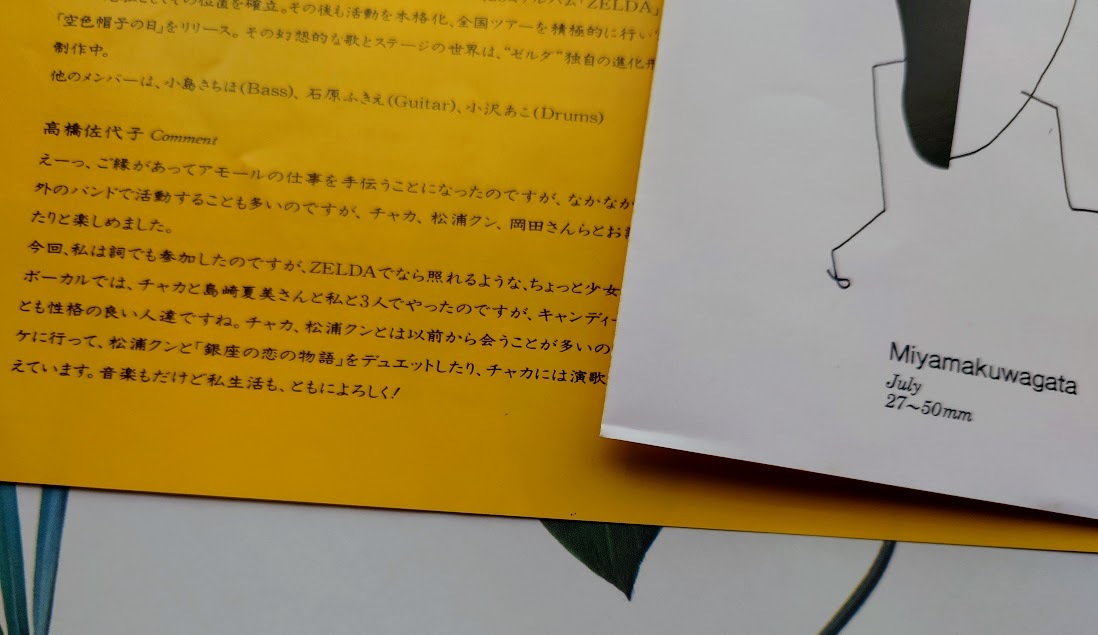 その位置を確立。その後も活動を本格化、全国ツアーを積極的に行い
「空色帽子の日」をリリース。その幻想的な歌とステージの世界は、“ゼルダ”独自の進化
制作中。
他のメンバーは、小島さちほ(Bass)、石原ふきえ(Guitar)、小沢あこ(Drums)
高橋佐代子 Comment
えーっ、ご縁があってアモールの仕事を手伝うことになったのですが、なかなか
外のバンドで活動することも多いのですが、チャカ、松浦クン、岡田さんらとお
たりと楽しめました。
今回、私は詞でも参加したのですが、ZELDAでなら照れるような、ちょっと少女
ボーカルでは、チャカと島崎夏美さんと私と3人でやったのですが、キャンディー
とも性格の良い人達ですね。チャカ、松浦クンとは以前から会うことが多いの
ケに行って、松浦クンと「銀座の恋の物語」をデュエットしたり、チャカには演歌
えています。音楽もだけど私生活も、ともによろしく!
Miyamakuwagata
July
27～50mm